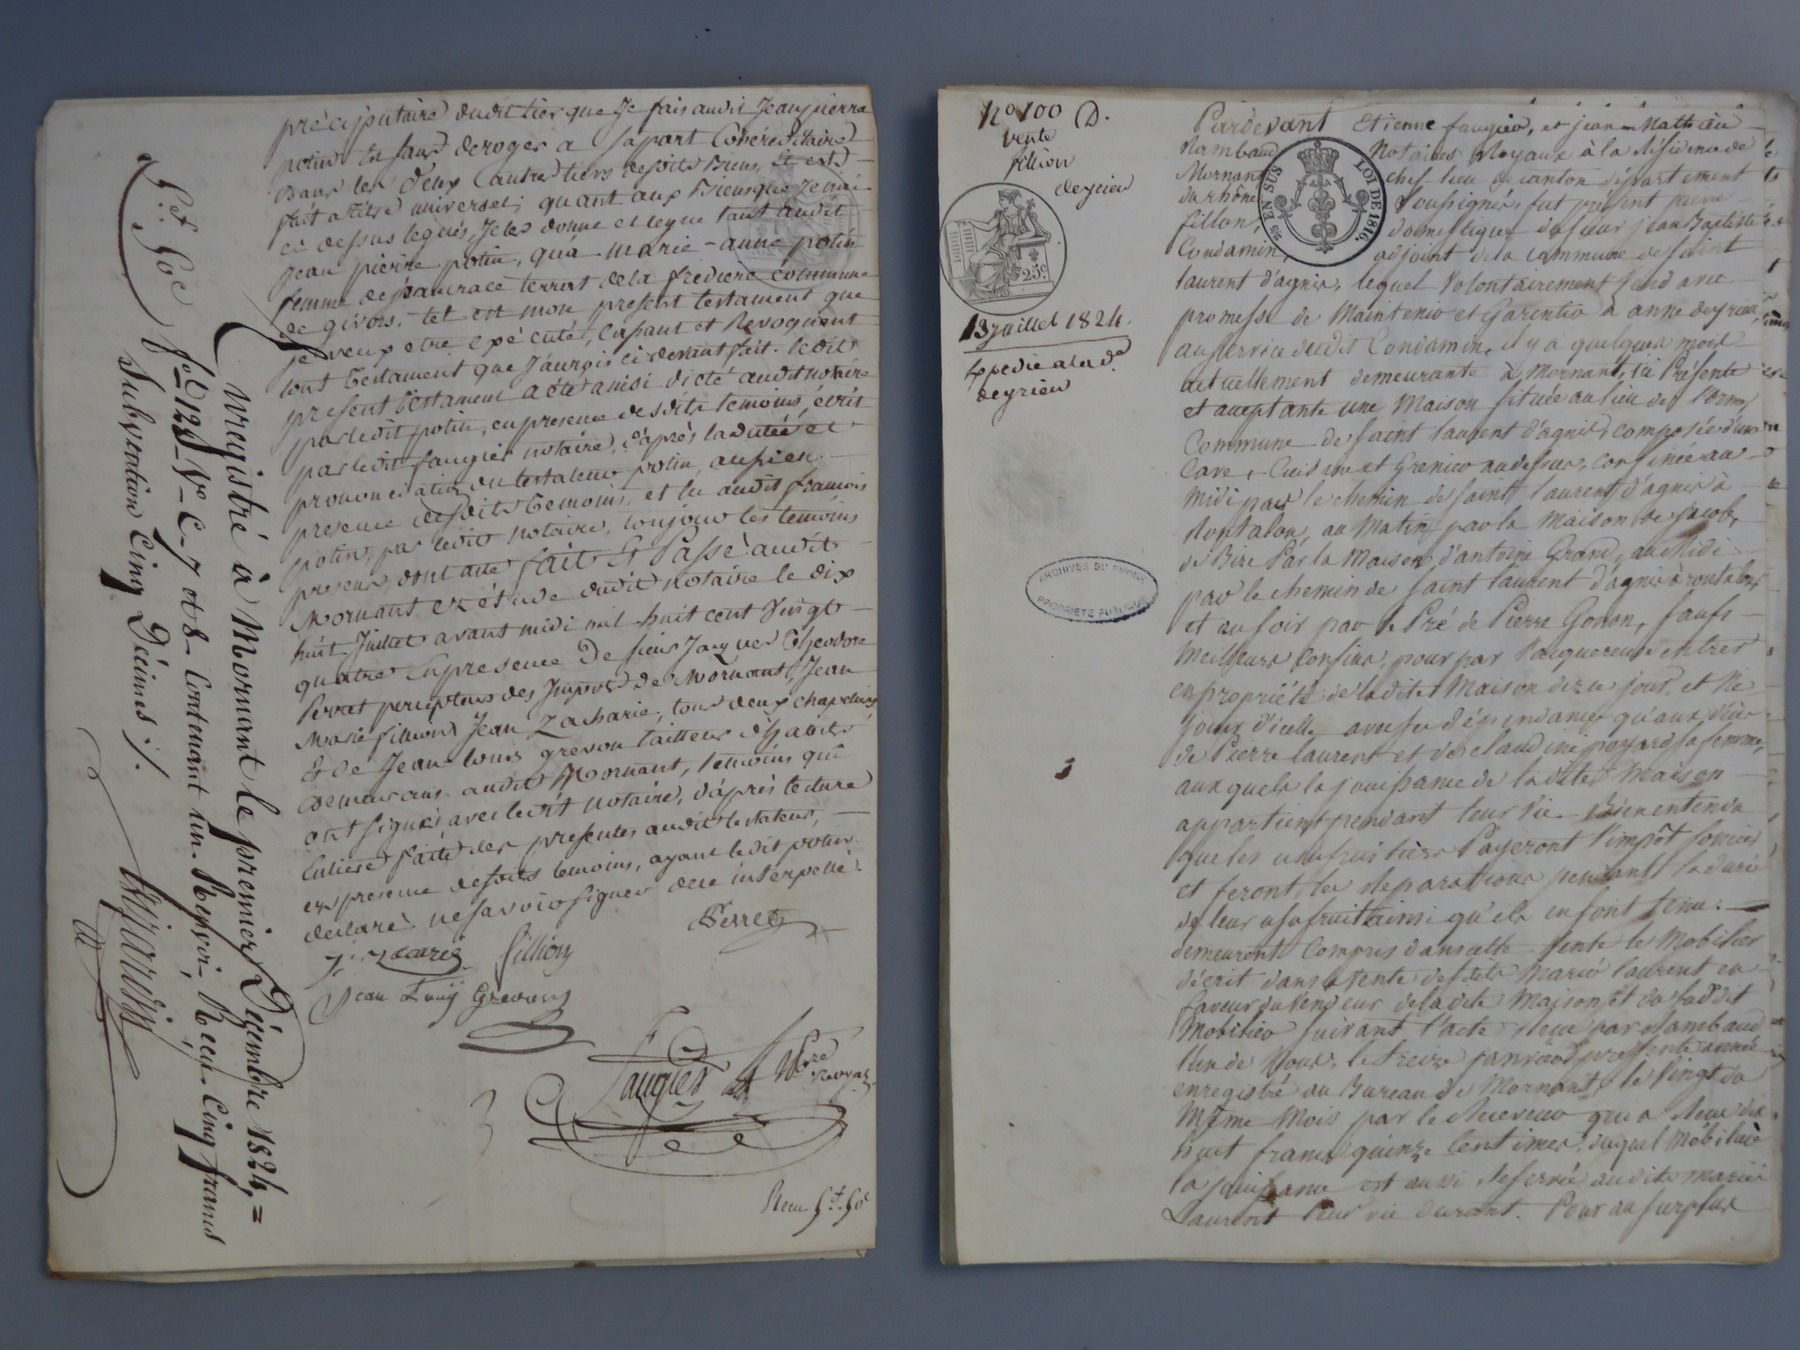 précipitaire dudit tier que Je fais audit Jean pierre
potin En sans deroger a sa part Cohereditaire
Dans les deux autres tiers desdits Biens. Et est
fait a titre universel; quant aux Biens que Jeurai
ci dessus legués, Je les donne et legue tant audit
Jean pierre potin, qu'a marie-anne potin
femme de pancrace terrat de la fredière commune
de givors. tel est mon present testament que
je veux etre exécuté, Cassant et Revoquant
tout testament que J'aurois ci devant fait. ledit
present testament a été ainsi dicté audit notaire
par ledit potin, en presence desdits temoins, écrit
par ledit faugier notaire, d'après la dictée et
prononciation du testateur potin, aussi en
presence desdits temoins, et lu audit françois
potin, par ledit notaire, toujours les temoins
presens, dont acte fait Et Passé audit
Mornant en étude dudit notaire le dix
huit Juillet avant midi mil huit cent Vingt
quatre En presence De sieurs Jacques Theodore
Perret percepteur des Impots de Mornant, Jean
Marie fillion, Jean Zacharie, tous deux chapeliers
Et de Jean-louis grevon tailleur d'habits
demeurans audit Mornant, temoins qui
ont signé avec ledit notaire, d'après lecture
Entière faite des presentes audit testateur,
en presence desdits temoins, ayant ledit potin
declaré ne savoir signer de ce interpellé.
Perret
J. Zacarie fillion
Jean Louis Grevon
Faugier Nre Royal
Recu 5f. 50c
Enregistré à Mornant le premier Décembre 1824,=
fo 123 Vo C-7 et 8 Contenant un Renvoi, Reçu Cinq francs
Subvention Cinq Décimes ./.
5f 50c
no 100 D.
Vente
fillion
deyrieu
25c
13 juillet 1824.
Expedié a la d.
deyrieu
ARCHIVES DU RHÔNE
PROPRIÉTÉ PUBLIQUE
25 EN SUS
LOI DE 1816.
Pardevant Etienne faugier, et jean Mathieu
Rambaud Notaires Royaux à la Résidence de
Mornant chef lieu de canton département
du rhône Soussignés, fut présent pierre
fillon, domestique du sieur jean Baptiste
Condamin, adjoint de la commune de saint
laurent d'agnis, lequel Volontairement Vend avec
promesse de Maintenir et Garentir à anne deyrieu,
au service dudit Condamin, il y a quelques mois
actuellement demeurante à Mornant, ici Présente
et acceptante une Maison située au lieu de
Commune de saint laurent d'agnis, composée d'une
Cave, Cuisine et Grenier au dessus, confinée au
midi par le chemin de saint laurent d'agnis à
Rontalon, au Matin par la maison de jacob,
de Bize Par la Maison d'antoine Grand, au Midi
par le chemin de saint laurent d'agnis à rontalon,
et au soir par le Pré de Pierre Gonon, saufs
Meilleurs Confins, pour par l'acquereuse entrer
en propriété de ladite Maison de ce jour, et Ne
jouir d'icelle avec ses dépendances qu'aux décès
de Pierre laurent et de claudine poyard sa femme,
aux quels la jouissance de ladite Maison
appartient pendant leur vie. Bien entendu
que les usufruitiers Payeront l'impôt foncier
et feront les réparations pendant la durée
de leur usufruit ainsi qu'ils en sont tenu:
demeurent Compris dans cette Vente le Mobilier
décrit dans la vente desdits Mariés laurent en
faveur du Vendeur de ladite Maison et du susdit
Mobilier suivant l'acte Reçu par Rambaud
l'un de Nous, le treize janvier presente année
enregistré au Bureau de Mornant le Vingt du
Même Mois par le Receveur qui a Reçu dix
huit francs quinze Centimes. duquel Mobilier
la jouissance est aussi Reservée audits mariés
Laurent leur vie durant. Pour au surplus